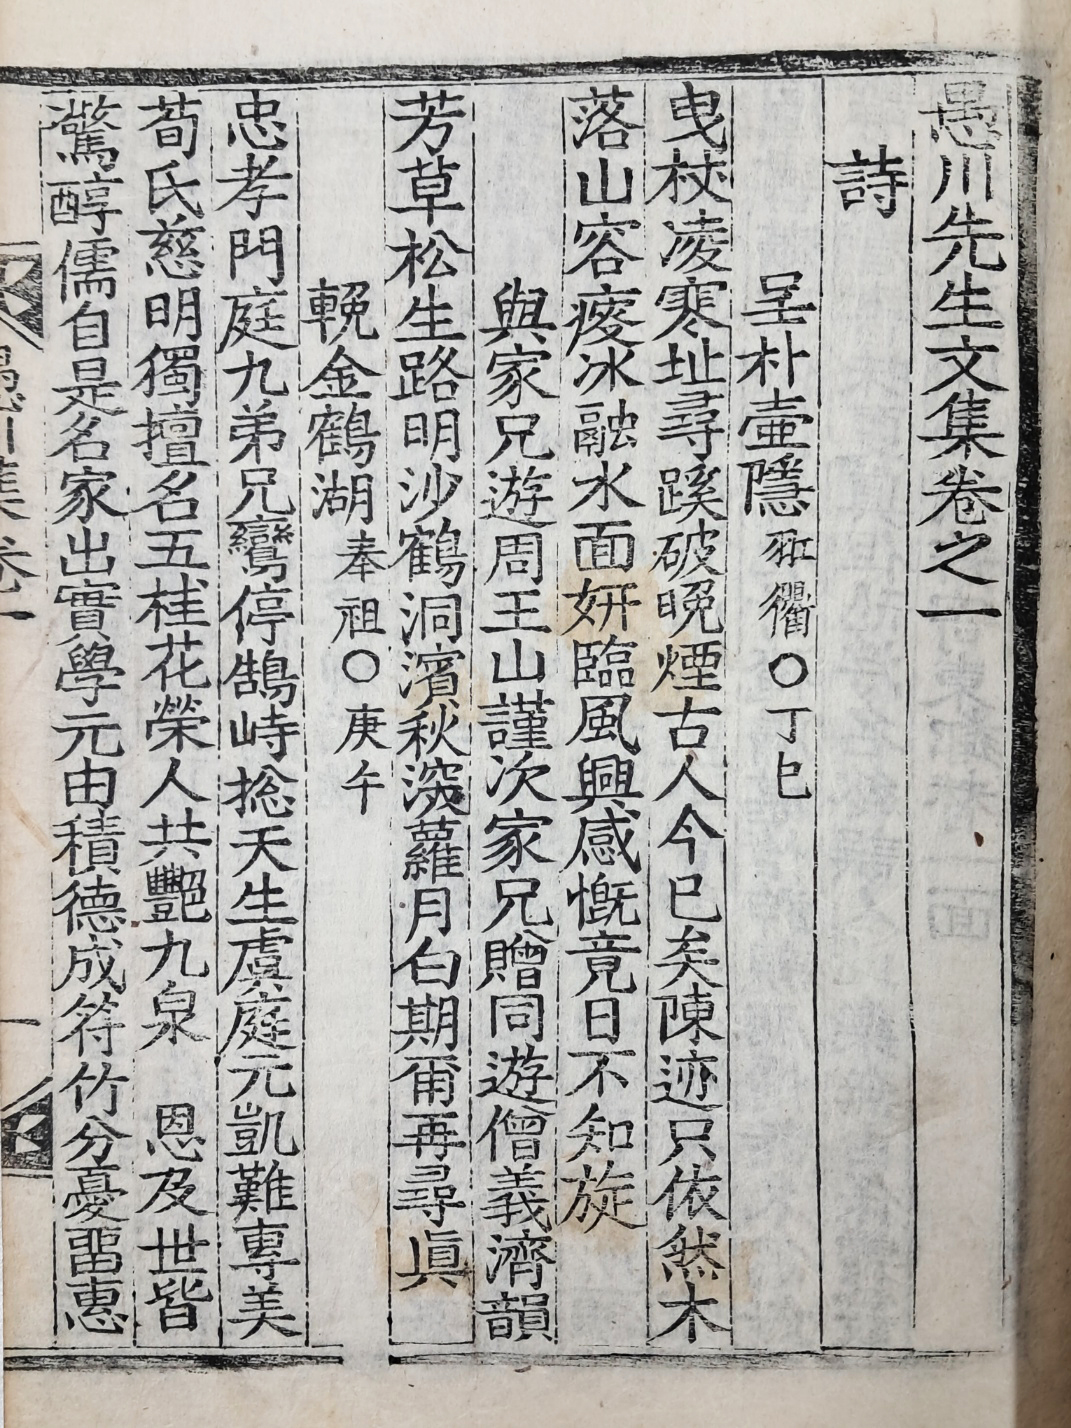 愚川先生文集卷之一
詩
呈朴壶隱 衢○丁巳
曳杖凌寒址尋蹊破晩煙古人今已矣陳迹只依然木
落山容瘦冰融水面姸臨風興感慨竟日不知旋
與家兄遊周王山謹次家兄贈同遊僧義濟韻
芳草松生路明沙鶴洞濱秋深蘿月白期爾再尋眞
輓金鶴湖 奉祖○庚午
忠孝門庭九弟兄鸞停鵠峙捴天生虞庭元凱難專美
荀氏慈明獨擅名五桂花榮人共艷九泉 恩及世皆
驚醇儒自是名家出實學元由積德成符竹分憂留惠
愚川集 卷一
一